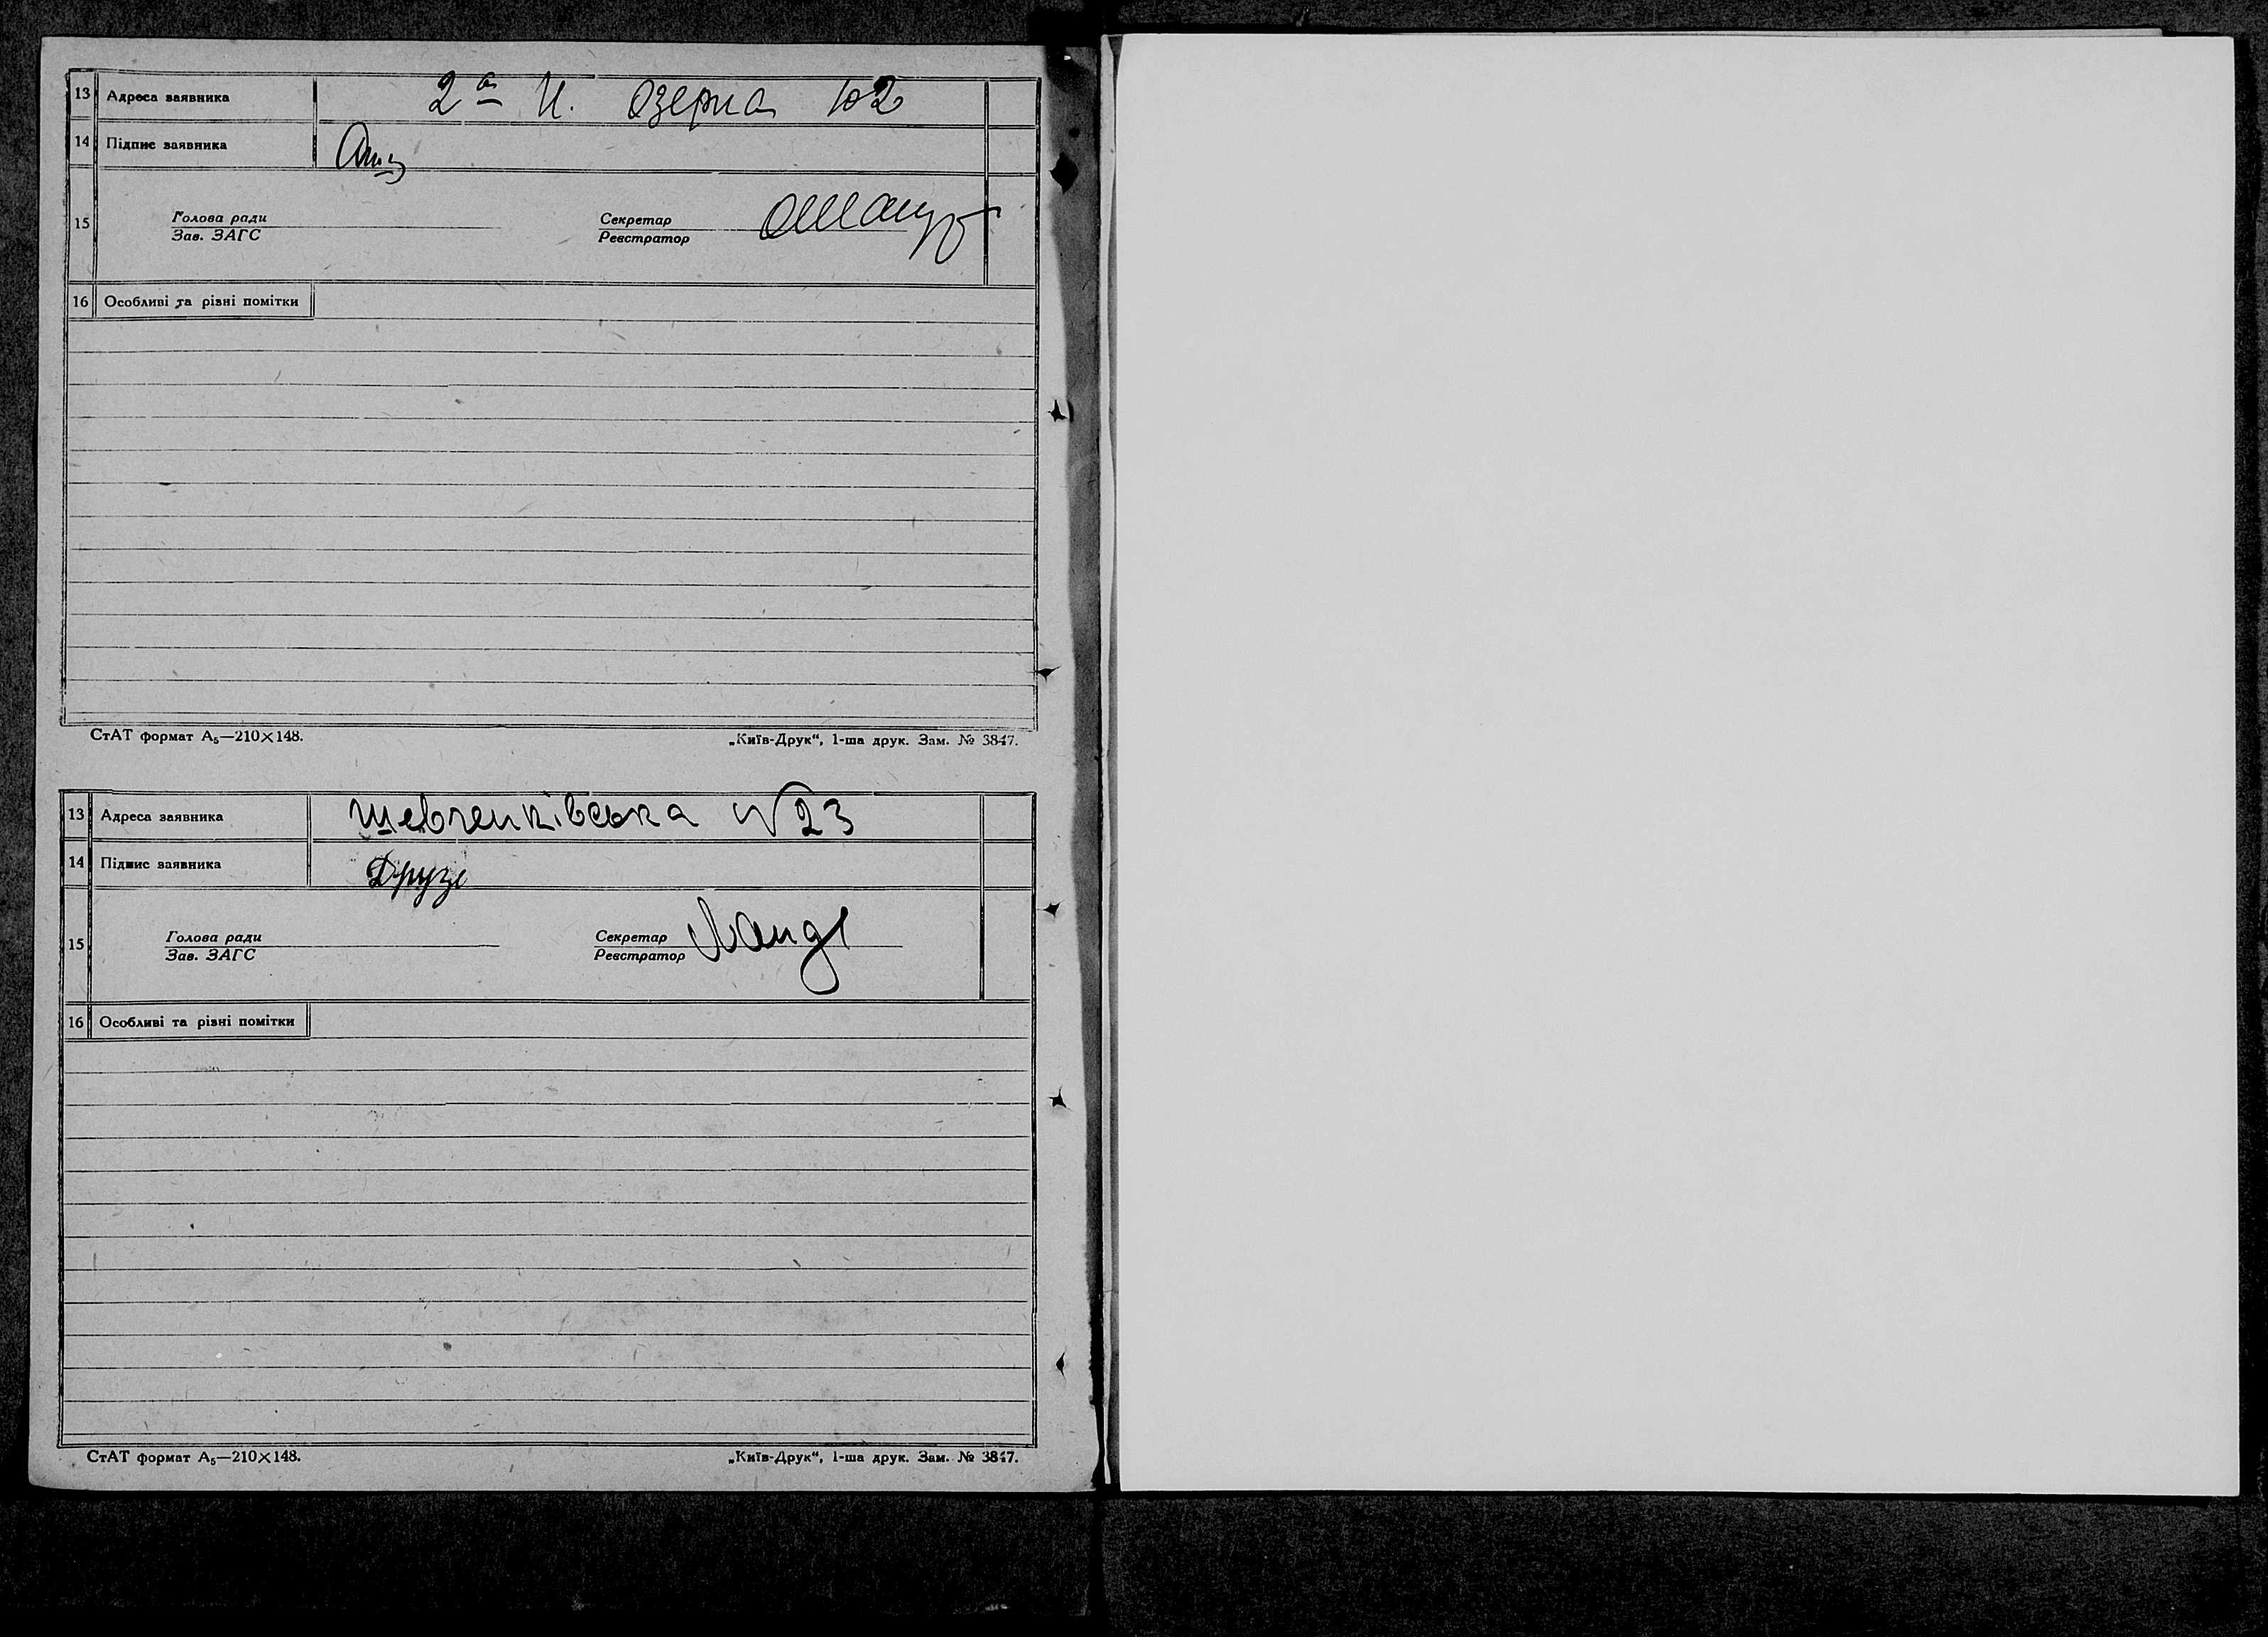 13 Адреса заявника 2а Н. Озерна 102
14 Підпис заявника
15 Голова ради Секретар
Зав. ЗАГС Реєстратор
16 Особливі та різні помітки
СтАТ формат А₅—210×148. „Київ-Друк“, 1-ша друк. Зам. № 3847.
13 Адреса заявника Шевченківська № 23
14 Підпис заявника Друзе
15 Голова ради Секретар
Зав. ЗАГС Реєстратор
16 Особливі та різні помітки
СтАТ формат А₅—210×148. „Київ-Друк“, 1-ша друк. Зам. № 3847.